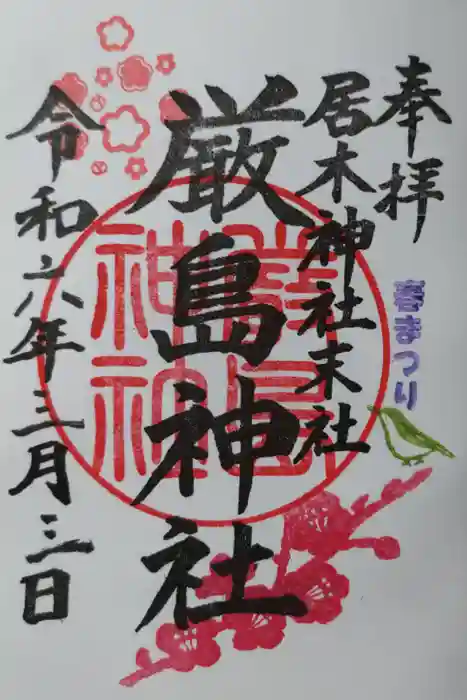 奉拝
春まつり
居木神社末社
厳島神社
令和六年三月三日